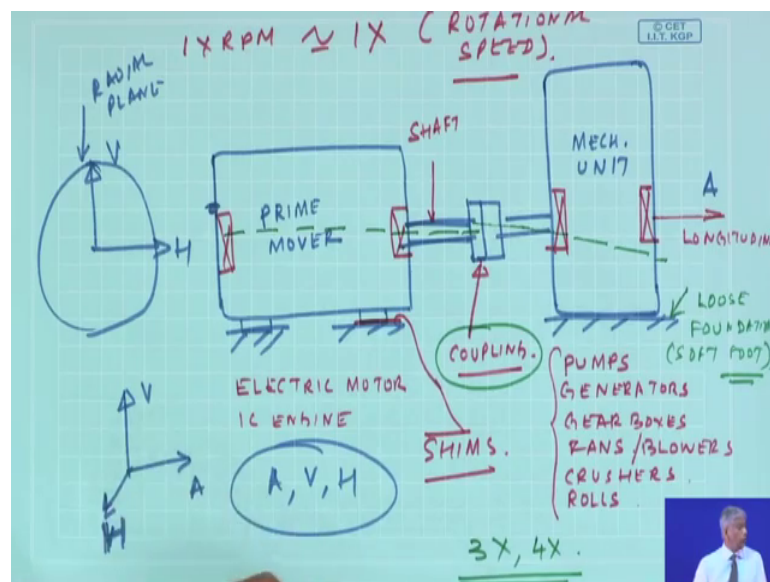 1 X RPM ≈ 1X (ROTATIONAL
SPEED).
© CET
I.I.T. KGP
RADIAL
PLANE
V
H
SHAFT
PRIME
MOVER
MECH.
UNIT
A
LONGITUDIN
LOOSE
FOUNDATIO
(SOFT FOOT)
COUPLING.
ELECTRIC MOTOR
IC ENGINE
SHIMS.
PUMPS
GENERATORS
GEAR BOXES
FANS/BLOWERS
CRUSHERS.
ROLLS.
V
A
H
A, V, H
3X, 4X.